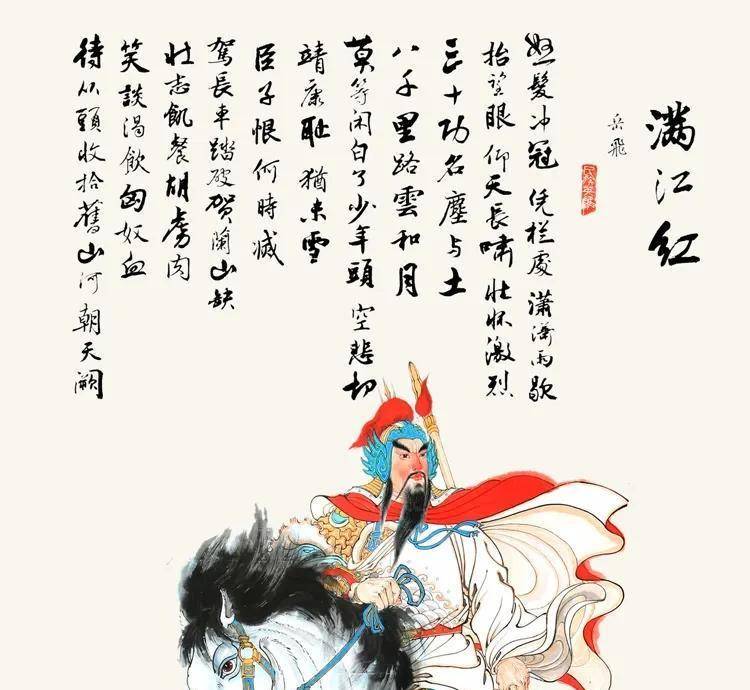 满江红
岳飛
怒髮冲冠 凭栏處 潇潇雨歇
抬望眼 仰天長啸 壮怀激烈
三十功名塵与土
八千里路雲和月
莫等闲白了少年頭 空悲切
靖康耻 猶未雪
臣子恨何時滅
駕長車踏破贺蘭山缺
壮志飢餐胡虏肉
笑談渴飲匈奴血
待从頭收拾舊山河朝天闕